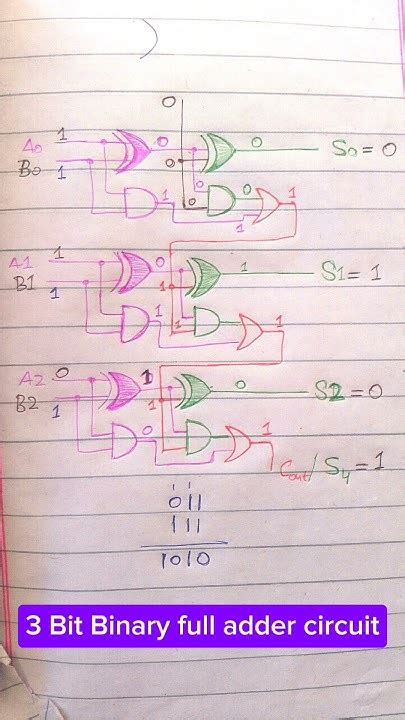 0
A0 1 0 0 S0 = 0
B0 1 0
1 0 0 0 1
1
A1 1 0 1 S1 = 1
B1 1 1
1 1 0 1
A2 0 1 0 S2 = 0
B2 1 1
0 1 1
Cout / S4 = 1
1 1
011
111
1010
3 Bit Binary full adder circuit